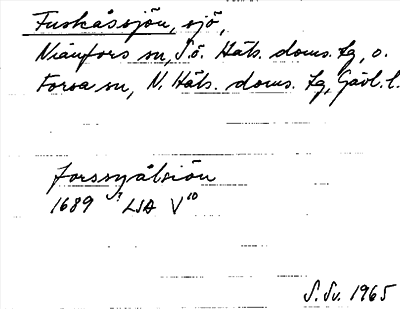 Fuskåssjön, sjö,
Nianfors sn, S.ö. Häls. doms. tg, o.
Forsa sn, N. Häls. doms. tg, Gävl. l.
forssyålsiön
1689 ? LSA V¹⁰
S. Sv. 1965